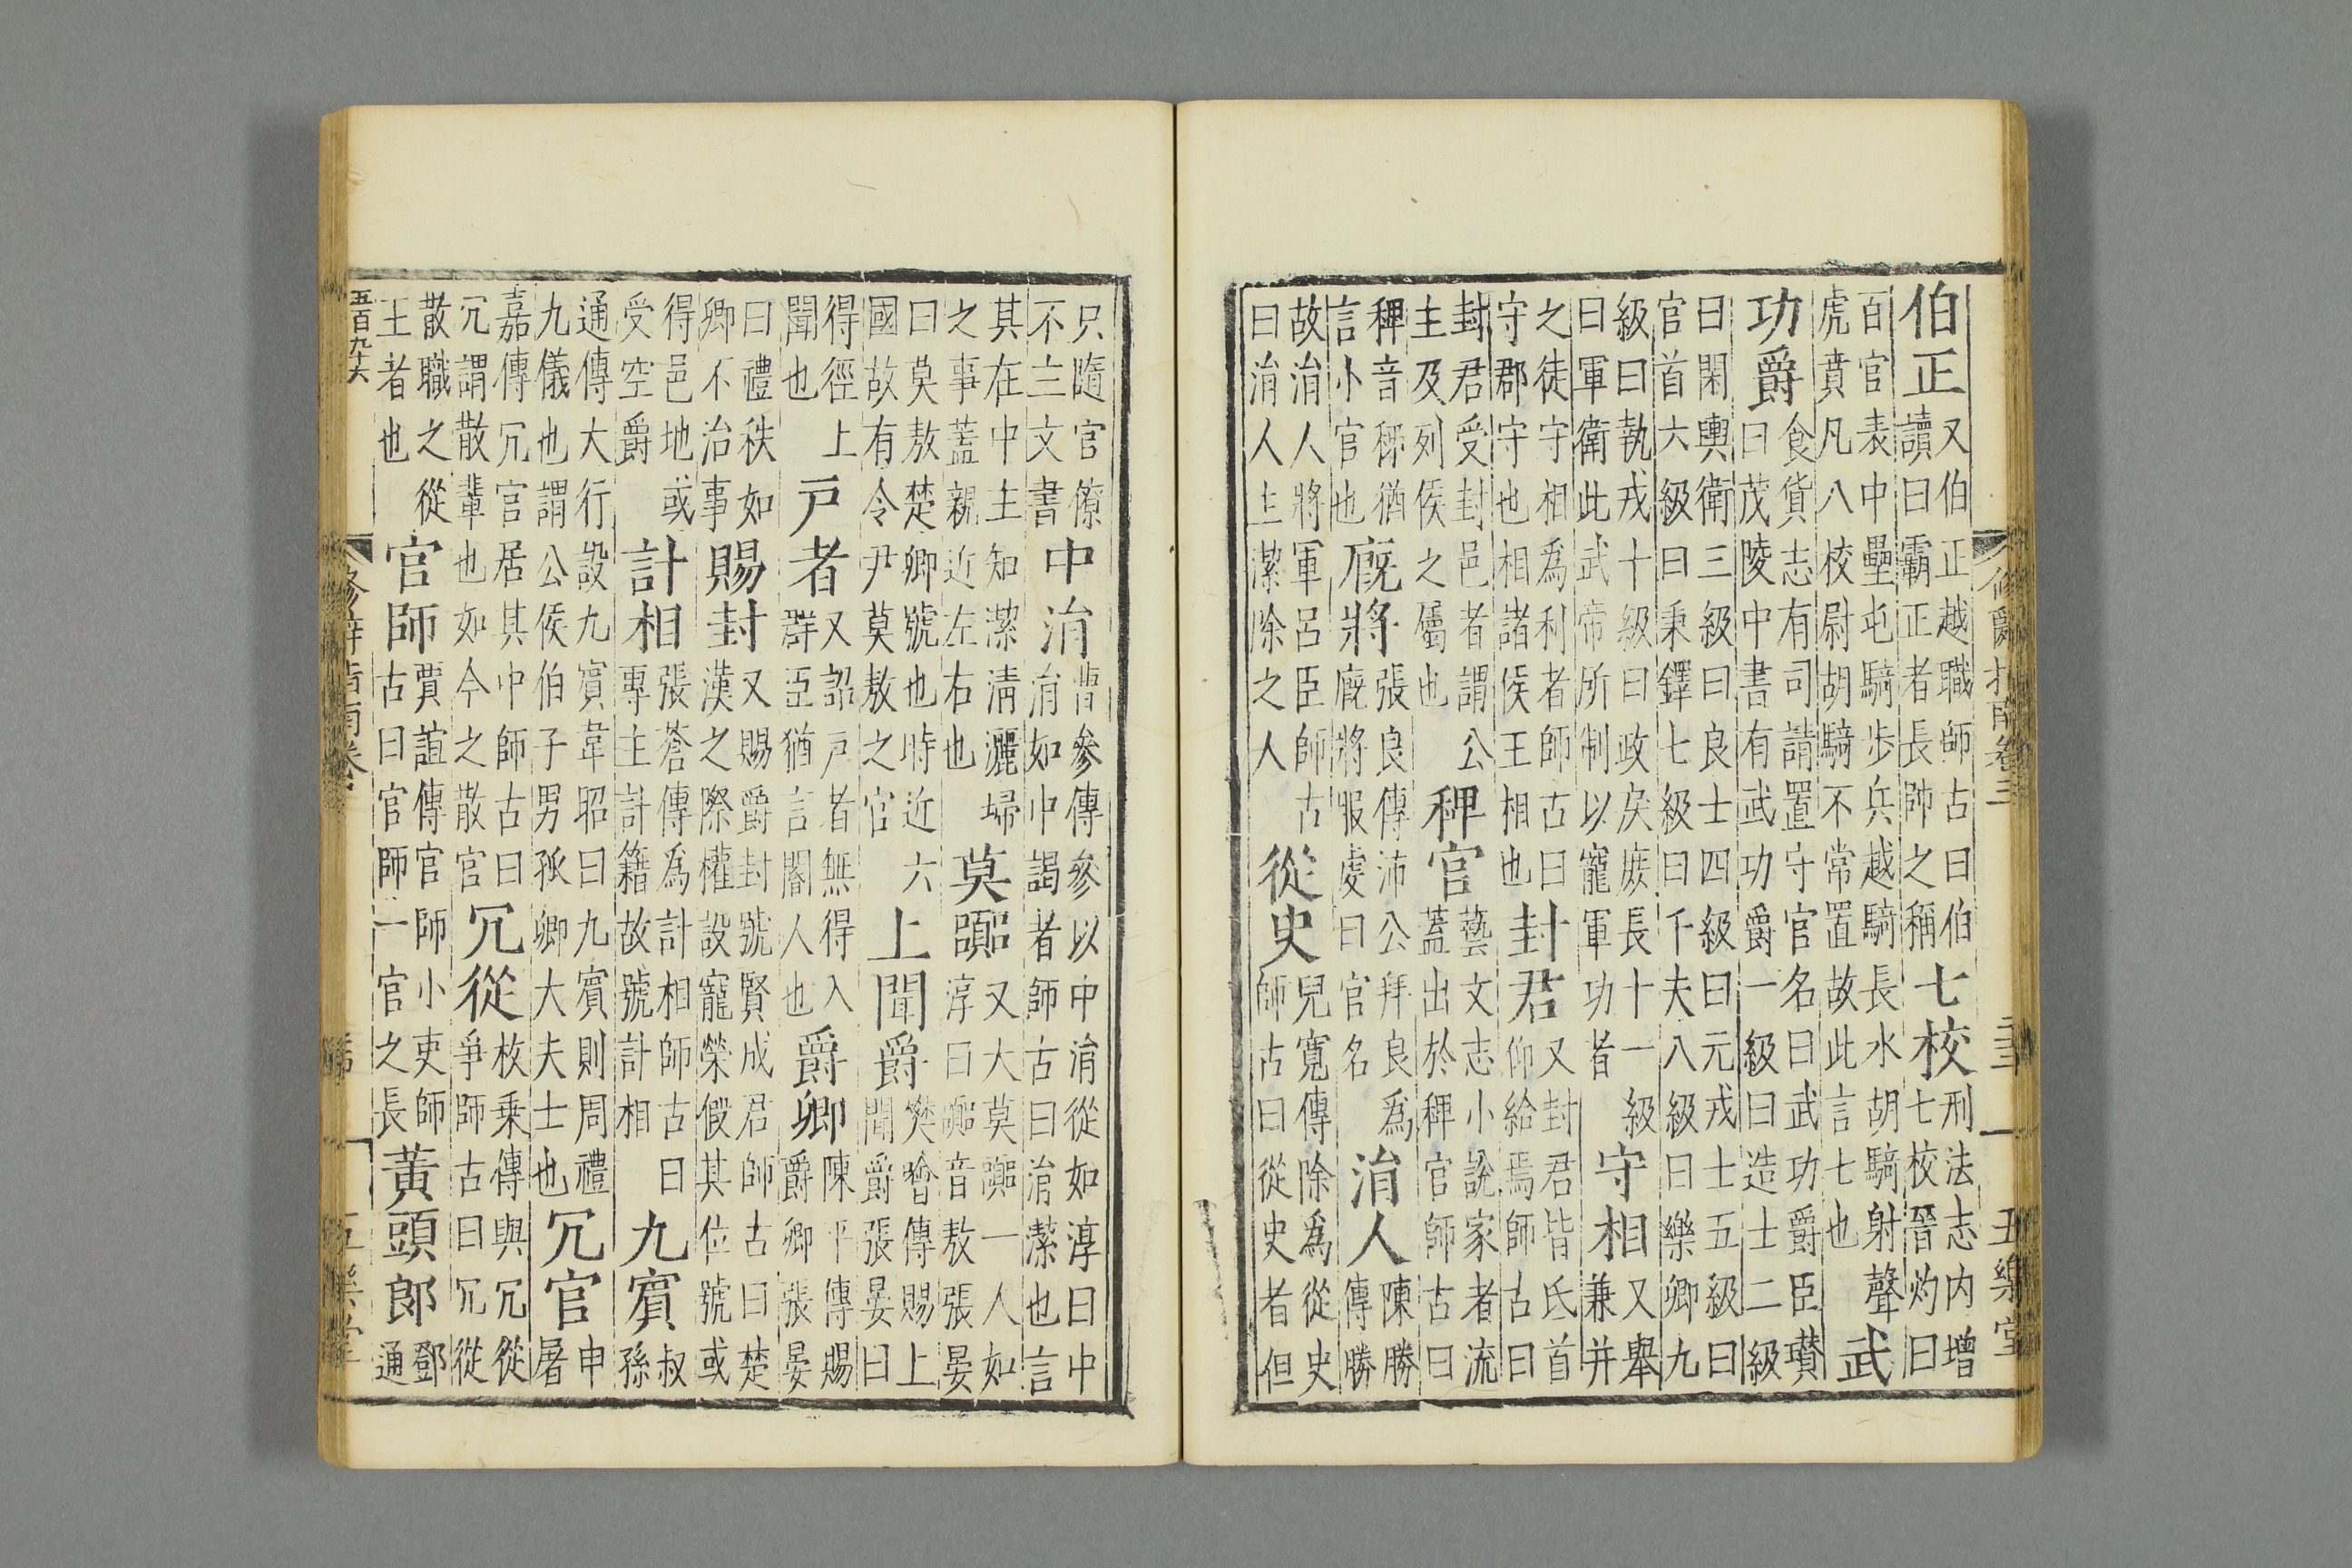 伯正又伯正越職師古曰伯讀曰霸正者長帥之稱七校刑法志内增七校晉灼曰
百官表中壘屯騎步兵越騎長水胡騎射聲虎賁凡八校尉胡騎不常置故此言七也武
功爵食貨志有司請置守官名曰武功爵臣瓚曰茂陵中書有武功爵一級曰造士二級
曰閑輿衛三級曰良士四級曰元戎士五級曰官首六級曰秉鐸七級曰千夫八級曰樂卿九
級曰執戎十級曰政戾庶長十一級曰軍衛此武帝所制以寵軍功者守相又舉兼并
之徒守守相為利者師古曰守郡守也相諸侯王相也封君又封君皆氐首仰給焉師古曰
封君受封邑者謂公主及列侯之屬也稗官藝文志小說家者流蓋出於稗官師古曰
稗音稊猶言小官也廐將張良傳沛公拜良為廐將服虔曰官名涓人陳勝傳勝
故涓人將軍呂臣師古曰涓人主潔除之人從史兒寬傳除為從史師古曰從史者但
修辭指南卷三
五樂堂
只隨官僚不主文書中涓曹參傳參以中涓從如淳曰中涓如中謁者師古曰涓潔也言
其在中主知潔清灑掃之事蓋親近左右也莫嚻又大莫嚻一人如淳曰嚻音敖張晏
曰莫敖楚卿號也時近六國故有令尹莫敖之官上聞爵樊噲傳賜上聞爵張晏曰
得徑上聞也戶者又詔戶者無得入群臣猶言閽人也爵卿陳平傳賜爵卿張晏
曰禮秩如卿不治事賜封又賜爵封號賢成君師古曰楚漢之際權設寵榮假其位號或
得邑地或受空爵計相張蒼傳為計相師古曰專主計籍故號計相九賓叔孫
通傳大行設九賓韋昭曰九賓則周禮九儀也謂公侯伯子男孤卿大夫士也冗官申屠
嘉傳冗官居其中師古曰冗謂散輩也如今之散官冗從枚乗傳與冗從爭師古曰冗從
散職之從王者也官師賈誼傳官師小吏師古曰官師一官之長黃頭郎鄧通
五百九十六
修辭指南卷